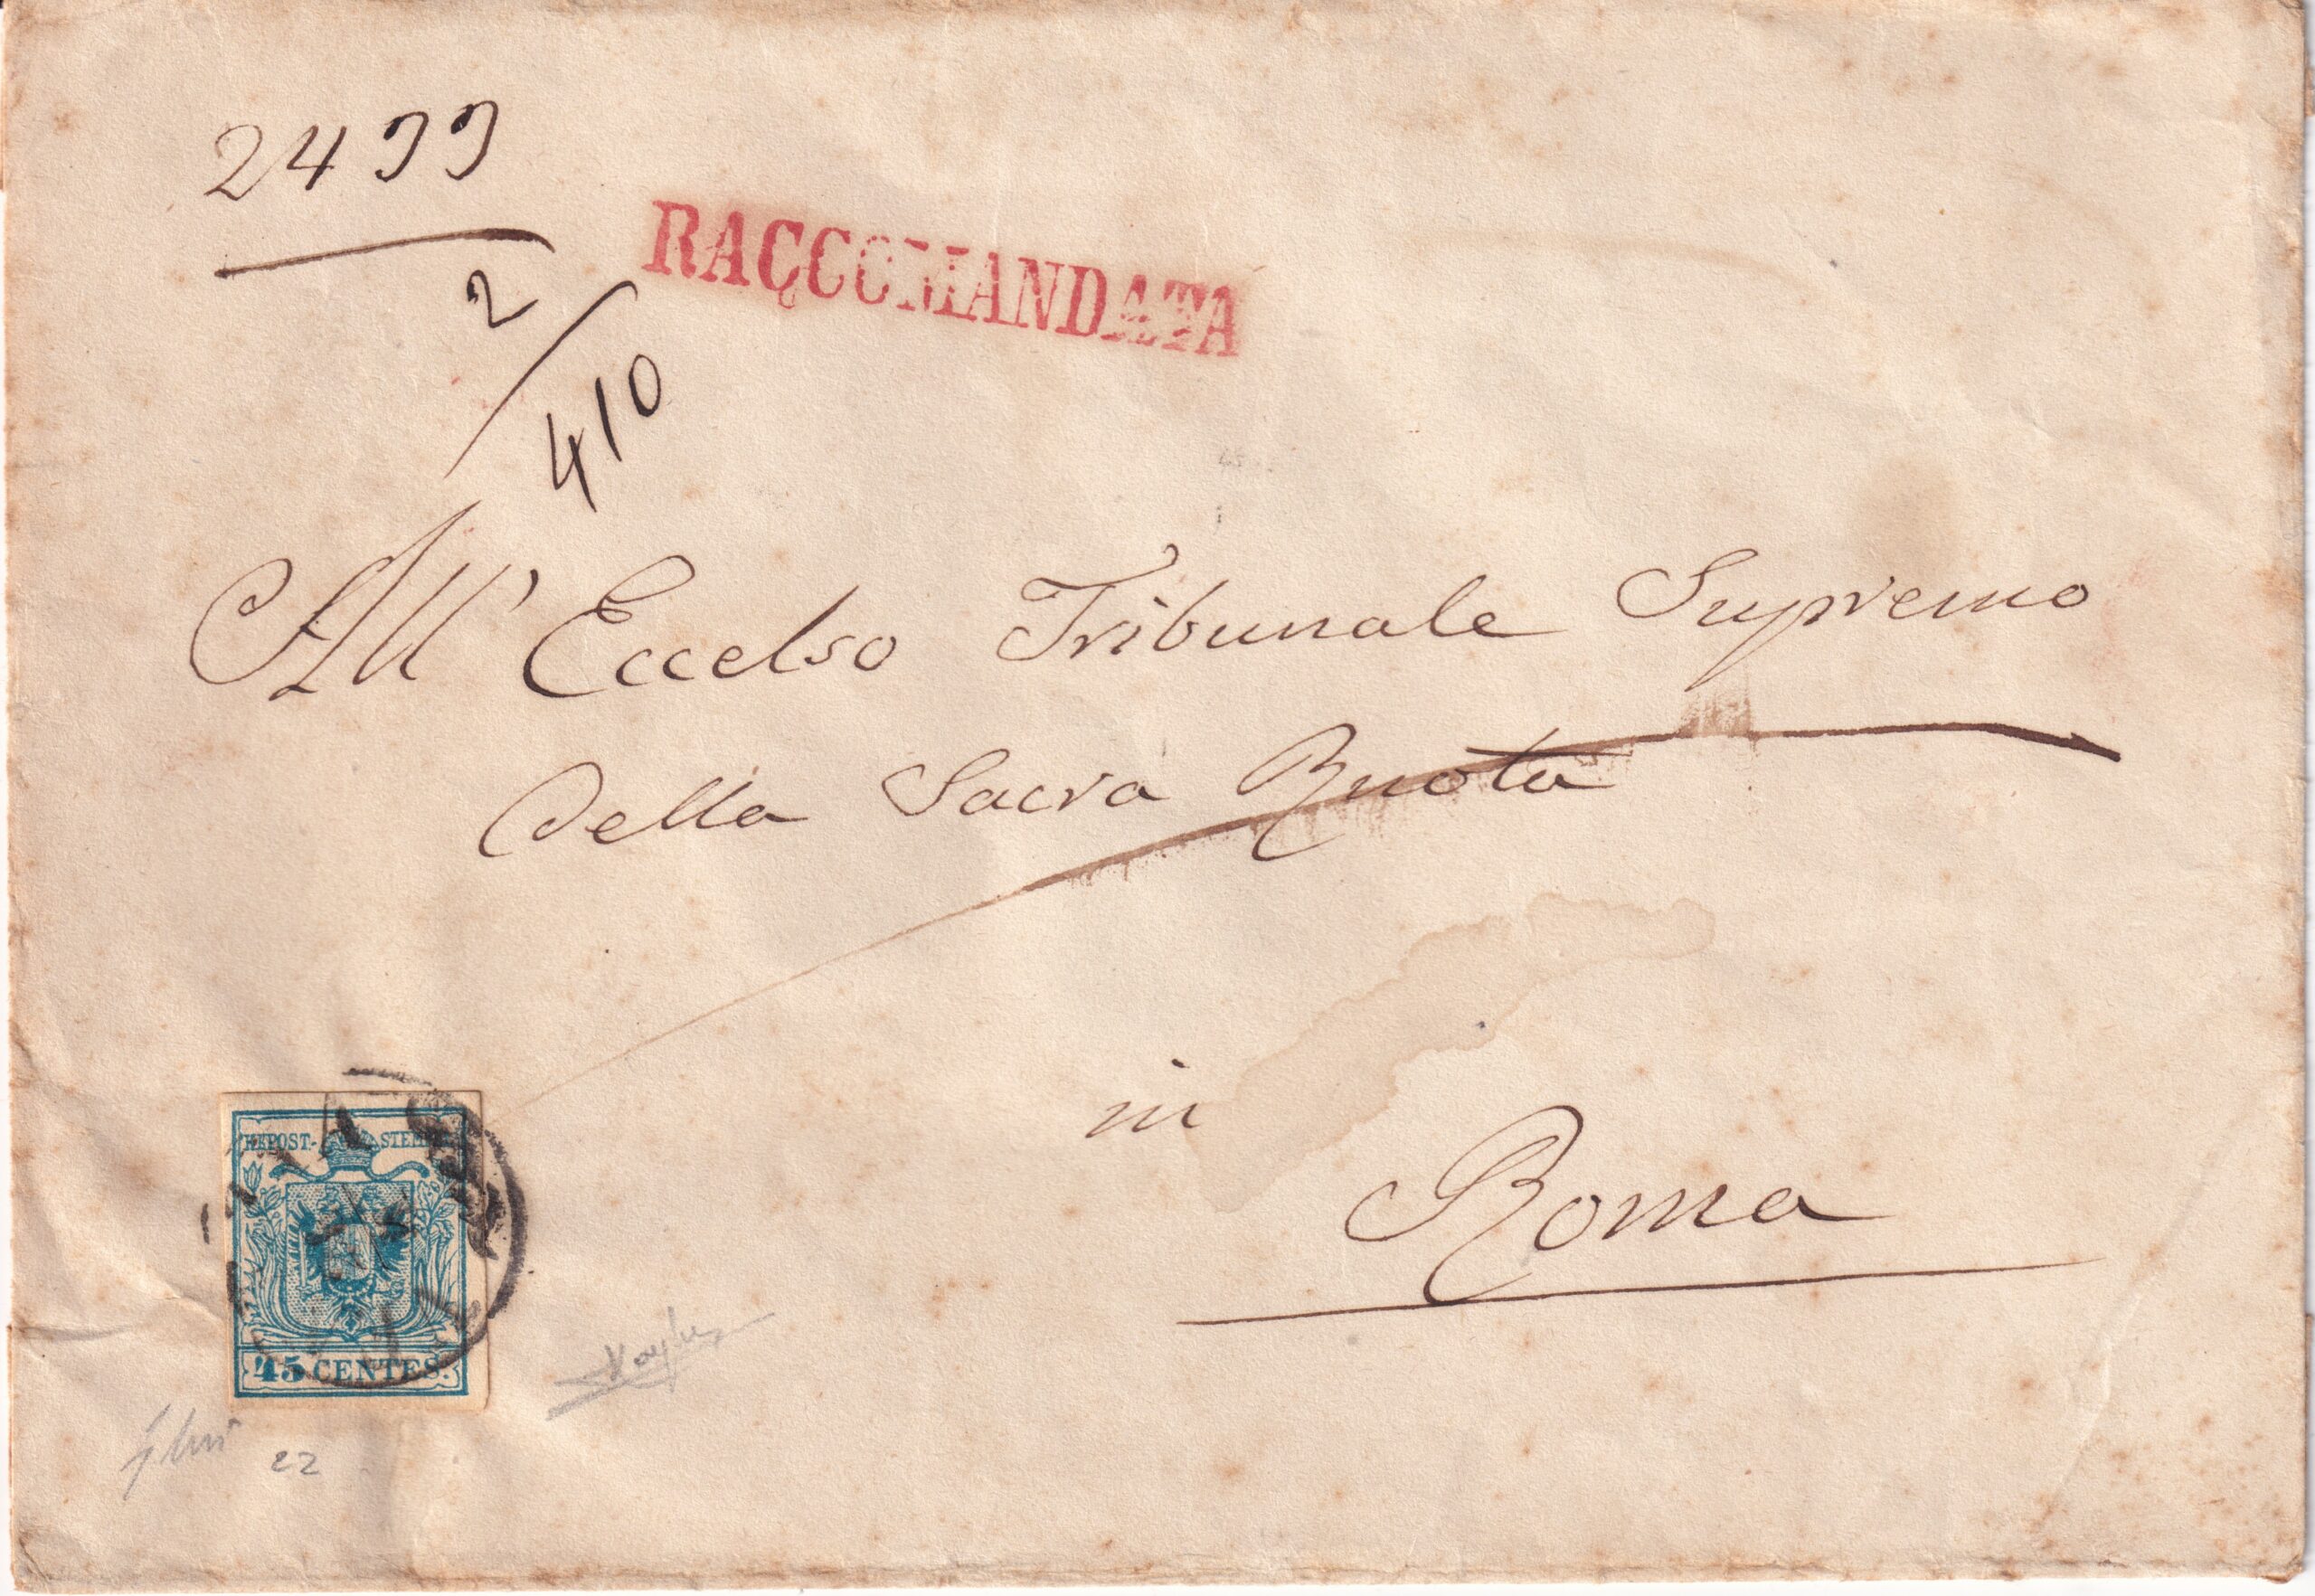 2499
2
410
RACCOMANDATA
All' Eccelso Tribunale Supremo
Della Sacra Ruota
in
Roma
KKPOST-STEMPEL
45 CENTES.
22